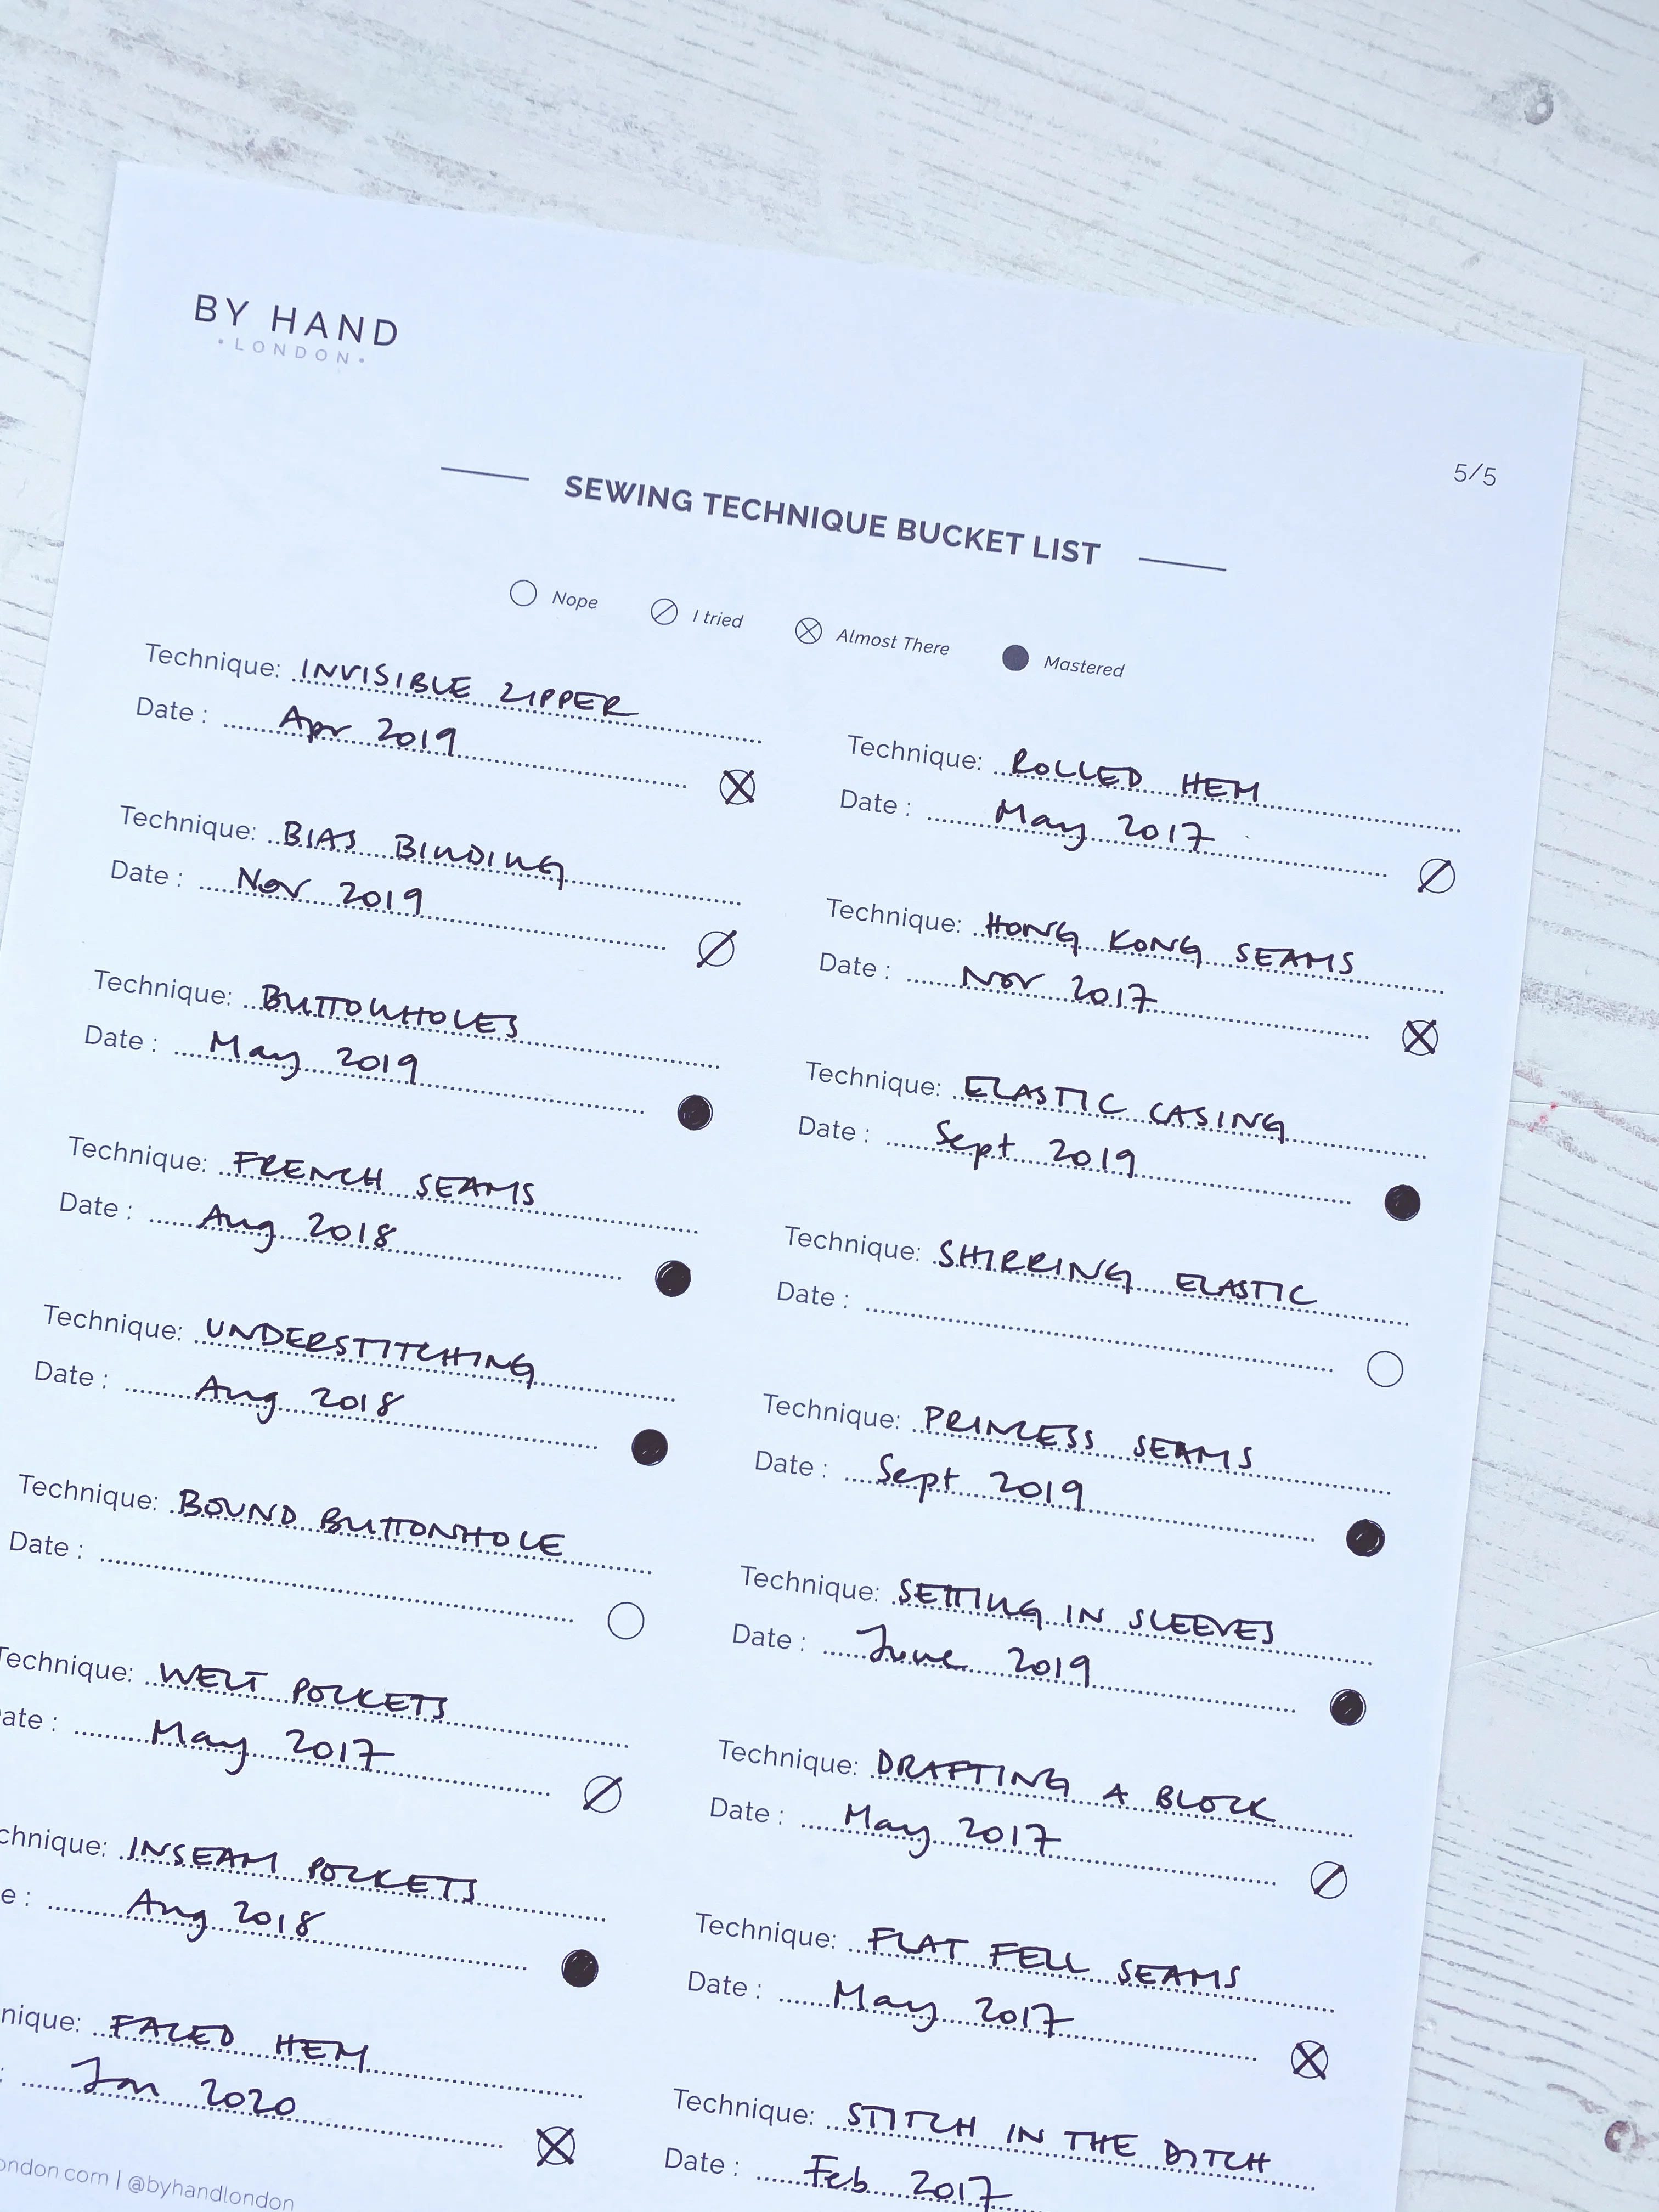 BY HAND
• LONDON •
5/5
SEWING TECHNIQUE BUCKET LIST
Nope I tried Almost There Mastered
Technique: INVISIBLE ZIPPER
Date : Apr 2019
Technique: BIAS BINDING
Date : Nov 2019
Technique: BUTTONHOLES
Date : May 2019
Technique: FRENCH SEAMS
Date : Aug 2018
Technique: UNDERSTITCHING
Date : Aug 2018
Technique: BOUND BUTTONHOLE
Date :
Technique: WELT POCKETS
ate : May 2017
chnique: INSEAM POCKETS
e : Aug 2018
nique: FACED HEM
: Jan 2020
Technique: ROLLED HEM
Date : May 2017
Technique: HONG KONG SEAMS
Date : Nov 2017
Technique: ELASTIC CASING
Date : Sept 2019
Technique: SHIRRING ELASTIC
Date :
Technique: PRINCESS SEAMS
Date : Sept 2019
Technique: SETTING IN SLEEVES
Date : June 2019
Technique: DRAFTING A BLOCK
Date : May 2017
Technique: FLAT FELL SEAMS
Date : May 2017
Technique: STITCH IN THE DITCH
Date : Feb 2017
ondon.com | @byhandlondon